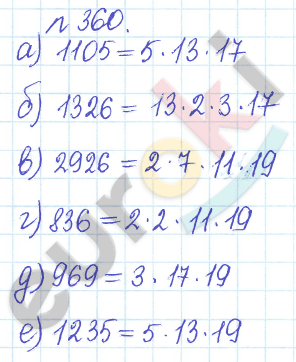 № 360.
а) 1105 = 5 · 13 · 17
б) 1326 = 13 · 2 · 3 · 17
в) 2926 = 2 · 7 · 11 · 19
г) 836 = 2 · 2 · 11 · 19
д) 969 = 3 · 17 · 19
е) 1235 = 5 · 13 · 19
euroki